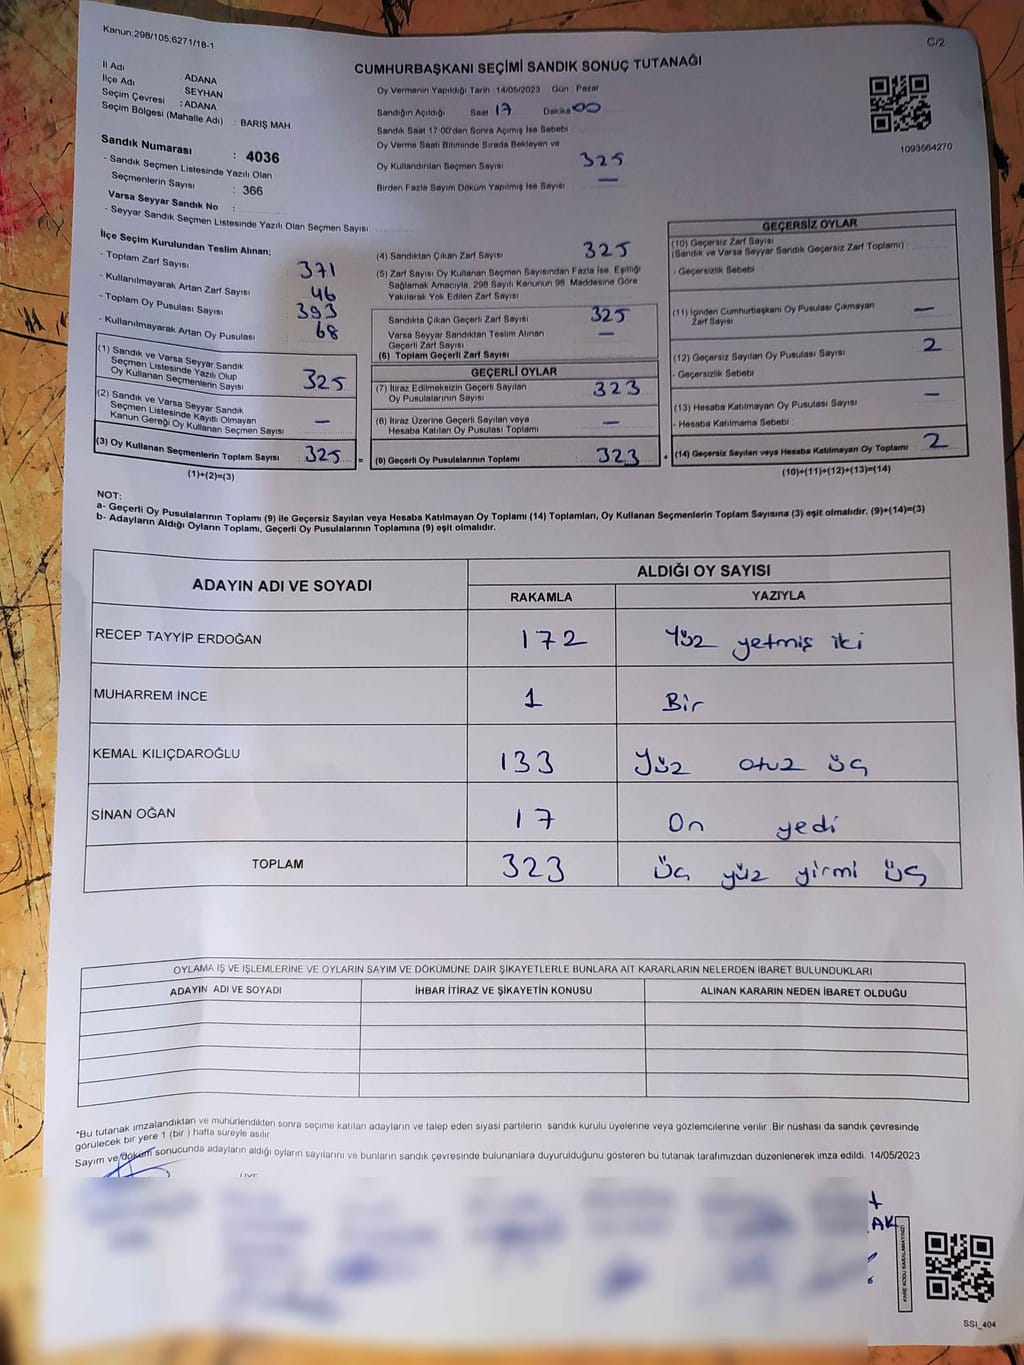 Kanun:298/105;6271/18-1
C/2
CUMHURBAŞKANI SEÇİMİ SANDIK SONUÇ TUTANAĞI
İl Adı : ADANA
İlçe Adı : SEYHAN
Seçim Çevresi : ADANA
Seçim Bölgesi (Mahalle Adı) : BARIŞ MAH
Sandık Numarası : 4036
- Sandık Seçmen Listesinde Yazılı Olan
Seçmenlerin Sayısı : 366
Varsa Seyyar Sandık No :
- Seyyar Sandık Seçmen Listesinde Yazılı Olan Seçmen Sayısı
Oy Vermenin Yapıldığı Tarih 14/05/2023 Gün Pazar
Sandığın Açıldığı Saat 17 Dakika 00
Sandık Saat 17:00'den Sonra Açımış İse Sebebi
Oy Verme Saati Bitiminde Sırada Bekleyen ve
Oy Kullandırılan Seçmen Sayısı 325
Birden Fazla Sayım Döküm Yapılmış İse Sayısı : —
1093664270
İlçe Seçim Kurulundan Teslim Alınan;
- Toplam Zarf Sayısı 371
- Kullanılmayarak Artan Zarf Sayısı 46
- Toplam Oy Pusulası Sayısı 393
- Kullanılmayarak Artan Oy Pusulası 68
(1) Sandık ve Varsa Seyyar Sandık
Seçmen Listesinde Yazılı Olup
Oy Kullanan Seçmenlerin Sayısı 325
(2) Sandık ve Varsa Seyyar Sandık
Seçmen Listesinde Kayıtlı Olmayan
Kanun Gereği Oy Kullanan Seçmen Sayısı —
(3) Oy Kullanan Seçmenlerin Toplam Sayısı 325 =
(1)+(2)=(3)
(4) Sandıktan Çıkan Zarf Sayısı 325
(5) Zarf Sayısı Oy Kullanan Seçmen Sayısından Fazla İse, Eşitliği
Sağlamak Amacıyla, 298 Sayılı Kanunun 98. Maddesine Göre
Yakılarak Yok Edilen Zarf Sayısı
Sandıkta Çıkan Geçerli Zarf Sayısı 325
Varsa Seyyar Sandıktan Teslim Alınan
Geçerli Zarf Sayısı —
(6) Toplam Geçerli Zarf Sayısı
GEÇERLİ OYLAR
(7) İtiraz Edilmeksizin Geçerli Sayılan
Oy Pusulalarının Sayısı 323
(8) İtiraz Üzerine Geçerli Sayılan veya
Hesaba Katılan Oy Pusulası Toplamı —
(9) Geçerli Oy Pusulalarının Toplamı 323 +
GEÇERSİZ OYLAR
(10) Geçersiz Zarf Sayısı
(Sandık ve Varsa Seyyar Sandık Geçersiz Zarf Toplamı)
- Geçersizlik Sebebi
(11) İçinden Cumhurbaşkanı Oy Pusulası Çıkmayan
Zarf Sayısı —
(12) Geçersiz Sayılan Oy Pusulası Sayısı 2
- Geçersizlik Sebebi
(13) Hesaba Katılmayan Oy Pusulası Sayısı —
- Hesaba Katılmama Sebebi
(14) Geçersiz Sayılan veya Hesaba Katılmayan Oy Toplamı 2
(10)+(11)+(12)+(13)=(14)
NOT:
a- Geçerli Oy Pusulalarının Toplamı (9) ile Geçersiz Sayılan veya Hesaba Katılmayan Oy Toplamı (14) Toplamları, Oy Kullanan Seçmenlerin Toplam Sayısına (3) eşit olmalıdır. (9)+(14)=(3)
b- Adayların Aldığı Oyların Toplamı, Geçerli Oy Pusulalarının Toplamına (9) eşit olmalıdır.
ADAYIN ADI VE SOYADI ALDIĞI OY SAYISI
RAKAMLA YAZIYLA
RECEP TAYYİP ERDOĞAN 172 Yüz yetmiş iki
MUHARREM İNCE 1 Bir
KEMAL KILIÇDAROĞLU 133 Yüz otuz üç
SİNAN OĞAN 17 On yedi
TOPLAM 323 üç yüz yirmi üç
OYLAMA İŞ VE İŞLEMLERİNE VE OYLARIN SAYIM VE DÖKÜMÜNE DAİR ŞİKAYETLERLE BUNLARA AİT KARARLARIN NELERDEN İBARET BULUNDUKLARI
ADAYIN ADI VE SOYADI İHBAR İTİRAZ VE ŞİKAYETİN KONUSU ALINAN KARARIN NEDEN İBARET OLDUĞU
*Bu tutanak imzalandıktan ve mühürlendikten sonra seçime katılan adayların ve talep eden siyasi partilerin sandık kurulu üyelerine veya gözlemcilerine verilir. Bir nüshası da sandık çevresinde
görülecek bir yere 1 (bir ) hafta süreyle asılır.
Sayım ve döküm sonucunda adayların aldığı oyların sayılarını ve bunların sandık çevresinde bulunanlara duyurulduğunu gösteren bu tutanak tarafımızdan düzenlenerek imza edildi. 14/05/2023
AK
KARE KODU KARALAMAYINIZ!
SSI_404